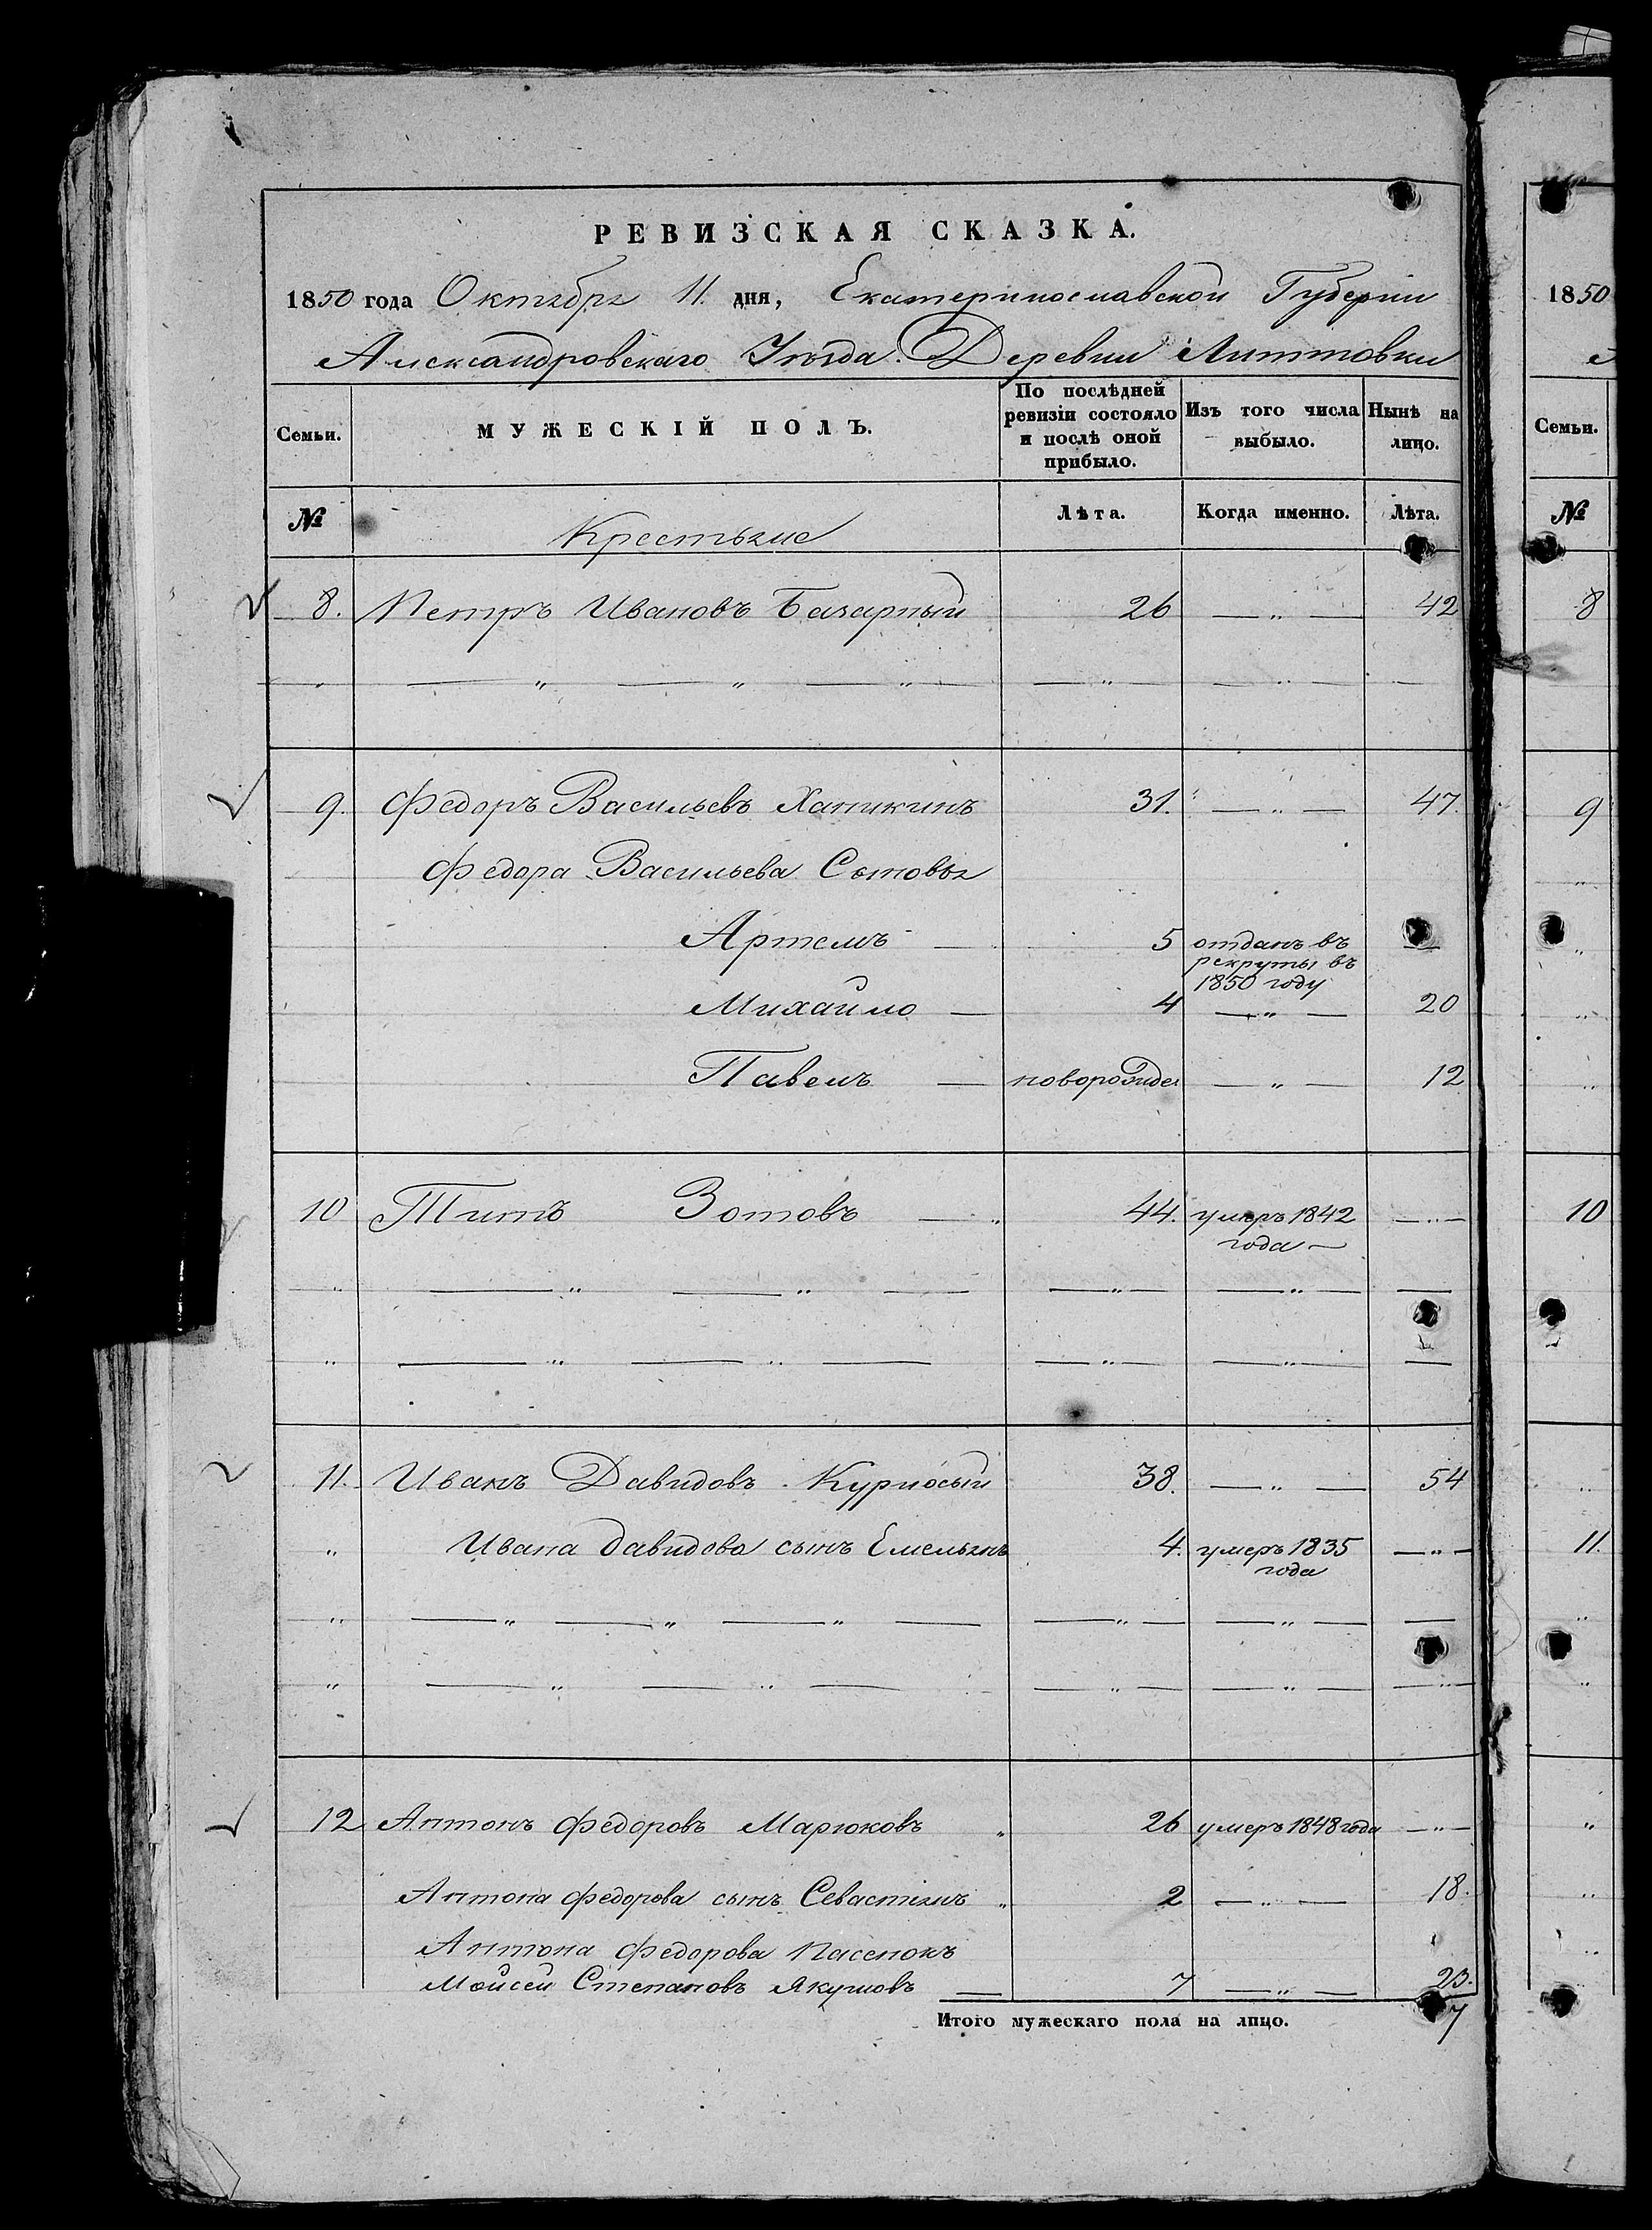 РЕВИЗСКАЯ СКАЗКА.
1850 года Октября 11. дня, Екатеринославской Губерніи
Александровскаго Уѣзда. Деревни
Семьи. МУЖЕСКІЙ ПОЛЪ. По послѣдней ревизіи состояло и послѣ оной прибыло. Изъ того числа выбыло. Нынѣ на лицо.
№ Крестьяне Лѣта. Когда именно. Лѣта.
8. Петръ Ивановъ 26 — „ — 42
9. Федоръ Васильевъ Хапикинъ 31. — „ — 47.
Федора Васильева Сыновья
Артемъ — 5 отданъ въ рекруты въ 1850 году —
Михайло — 4 — „ — 20
Павелъ — — „ — 12
10 Титъ Зотовъ — „ 44. умеръ 1842 года — — „ —
11. Иванъ Давидовъ Курносый 38. — „ — 54
„ Ивана Давидова сынъ Емельянъ 4. умеръ 1835 года — „ —
12 Антонъ Федоровъ Марюковъ „ 26 умеръ 1848 года — „ —
Антона Федорова сынъ Севастіянъ „ 2 — „ — 18.
Антона Федорова пасенокъ
Мойсей Степановъ Якушовъ — 7 — „ — 23.
Итого мужескаго пола на лицо. 7
1850
Семьи.
№
8
9
10
11.